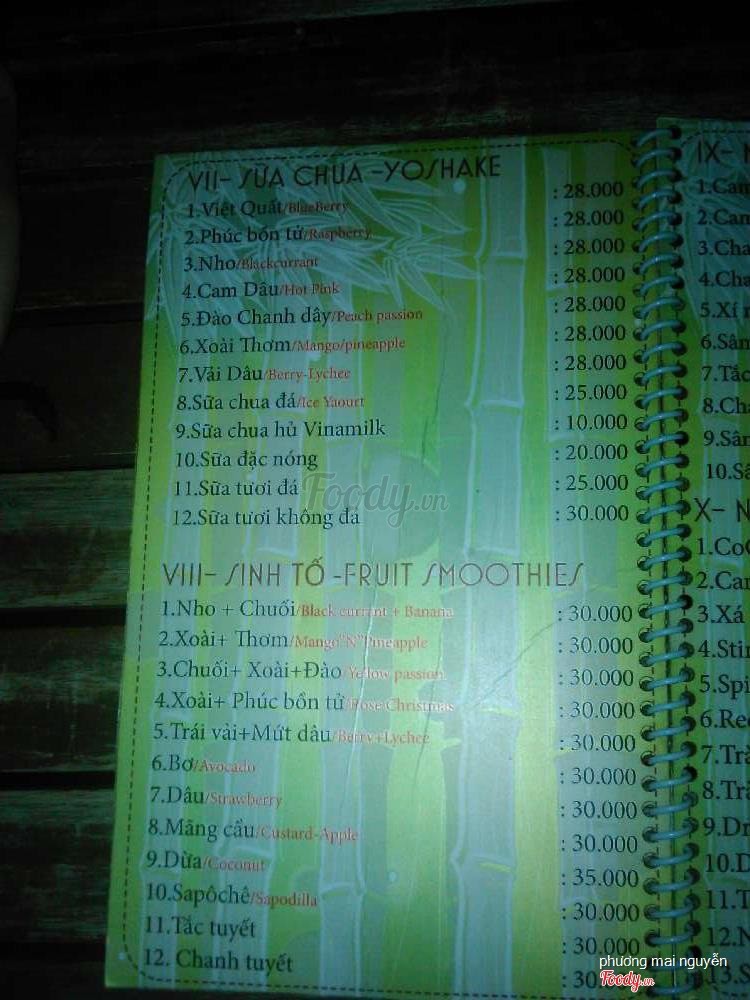 VII- SỮA CHUA -YOSHAKE
1.Việt Quất/BlueBerry : 28.000
2.Phúc bồn tử/Raspberry : 28.000
3.Nho/Blackcurrant : 28.000
4.Cam Dâu/Hot Pink : 28.000
5.Đào Chanh dây/Peach passion : 28.000
6.Xoài Thơm/Mango/pineapple : 28.000
7.Vải Dâu/Berry-Lychee : 28.000
8.Sữa chua đá/Ice Yaourt : 25.000
9.Sữa chua hủ Vinamilk : 10.000
10.Sữa đặc nóng : 20.000
11.Sữa tươi đá : 25.000
12.Sữa tươi không đá : 30.000
Foody.vn
VIII- SINH TỐ -FRUIT SMOOTHIES
1.Nho + Chuối/Black currant + Banana : 30.000
2.Xoài+ Thơm/Mango"N"Pineapple : 30.000
3.Chuối+ Xoài+Đào/Yellow passion : 30.000
4.Xoài+ Phúc bồn tử/Rose Christmas : 30.000
5.Trái vải+Mứt dâu/Berry+Lychee : 30.000
6.Bơ/Avocado : 30.000
7.Dâu/Strawberry : 30.000
8.Mãng cầu/Custard-Apple : 30.000
9.Dừa/Coconut : 35.000
10.Sapôchê/Sapodilla : 30.000
11.Tắc tuyết : 30.000
12. Chanh tuyết
IX-
1.Cam
2.Cam
3.Cha
4.Cha
5.Xí
6.Sâm
7.Tắc
8.Cha
9.Sâm
10.
X-
1.
2.
3.Xá
4.
5.
6.
7.
8.
9.
10.
11.
12.
13.
phương mai nguyễn
Foody.vn